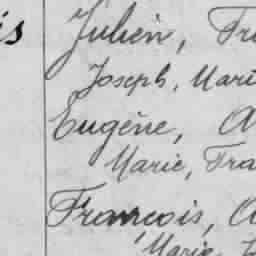 is Julien, Fr
Joseph, Mari
Eugène, A
Marie, Fra
François, A
Marie, J